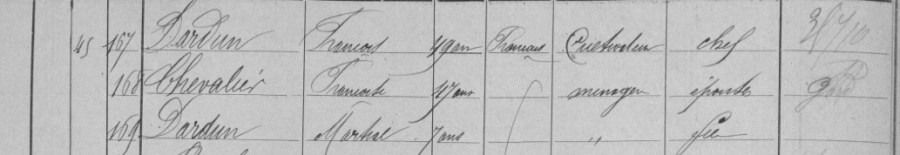 45 167 Dardun François 49 ans Français Cultivateur chef
168 Chevalier Francoise 47 ans menagère épouse
169 Dardun Martial 7 ans " fils